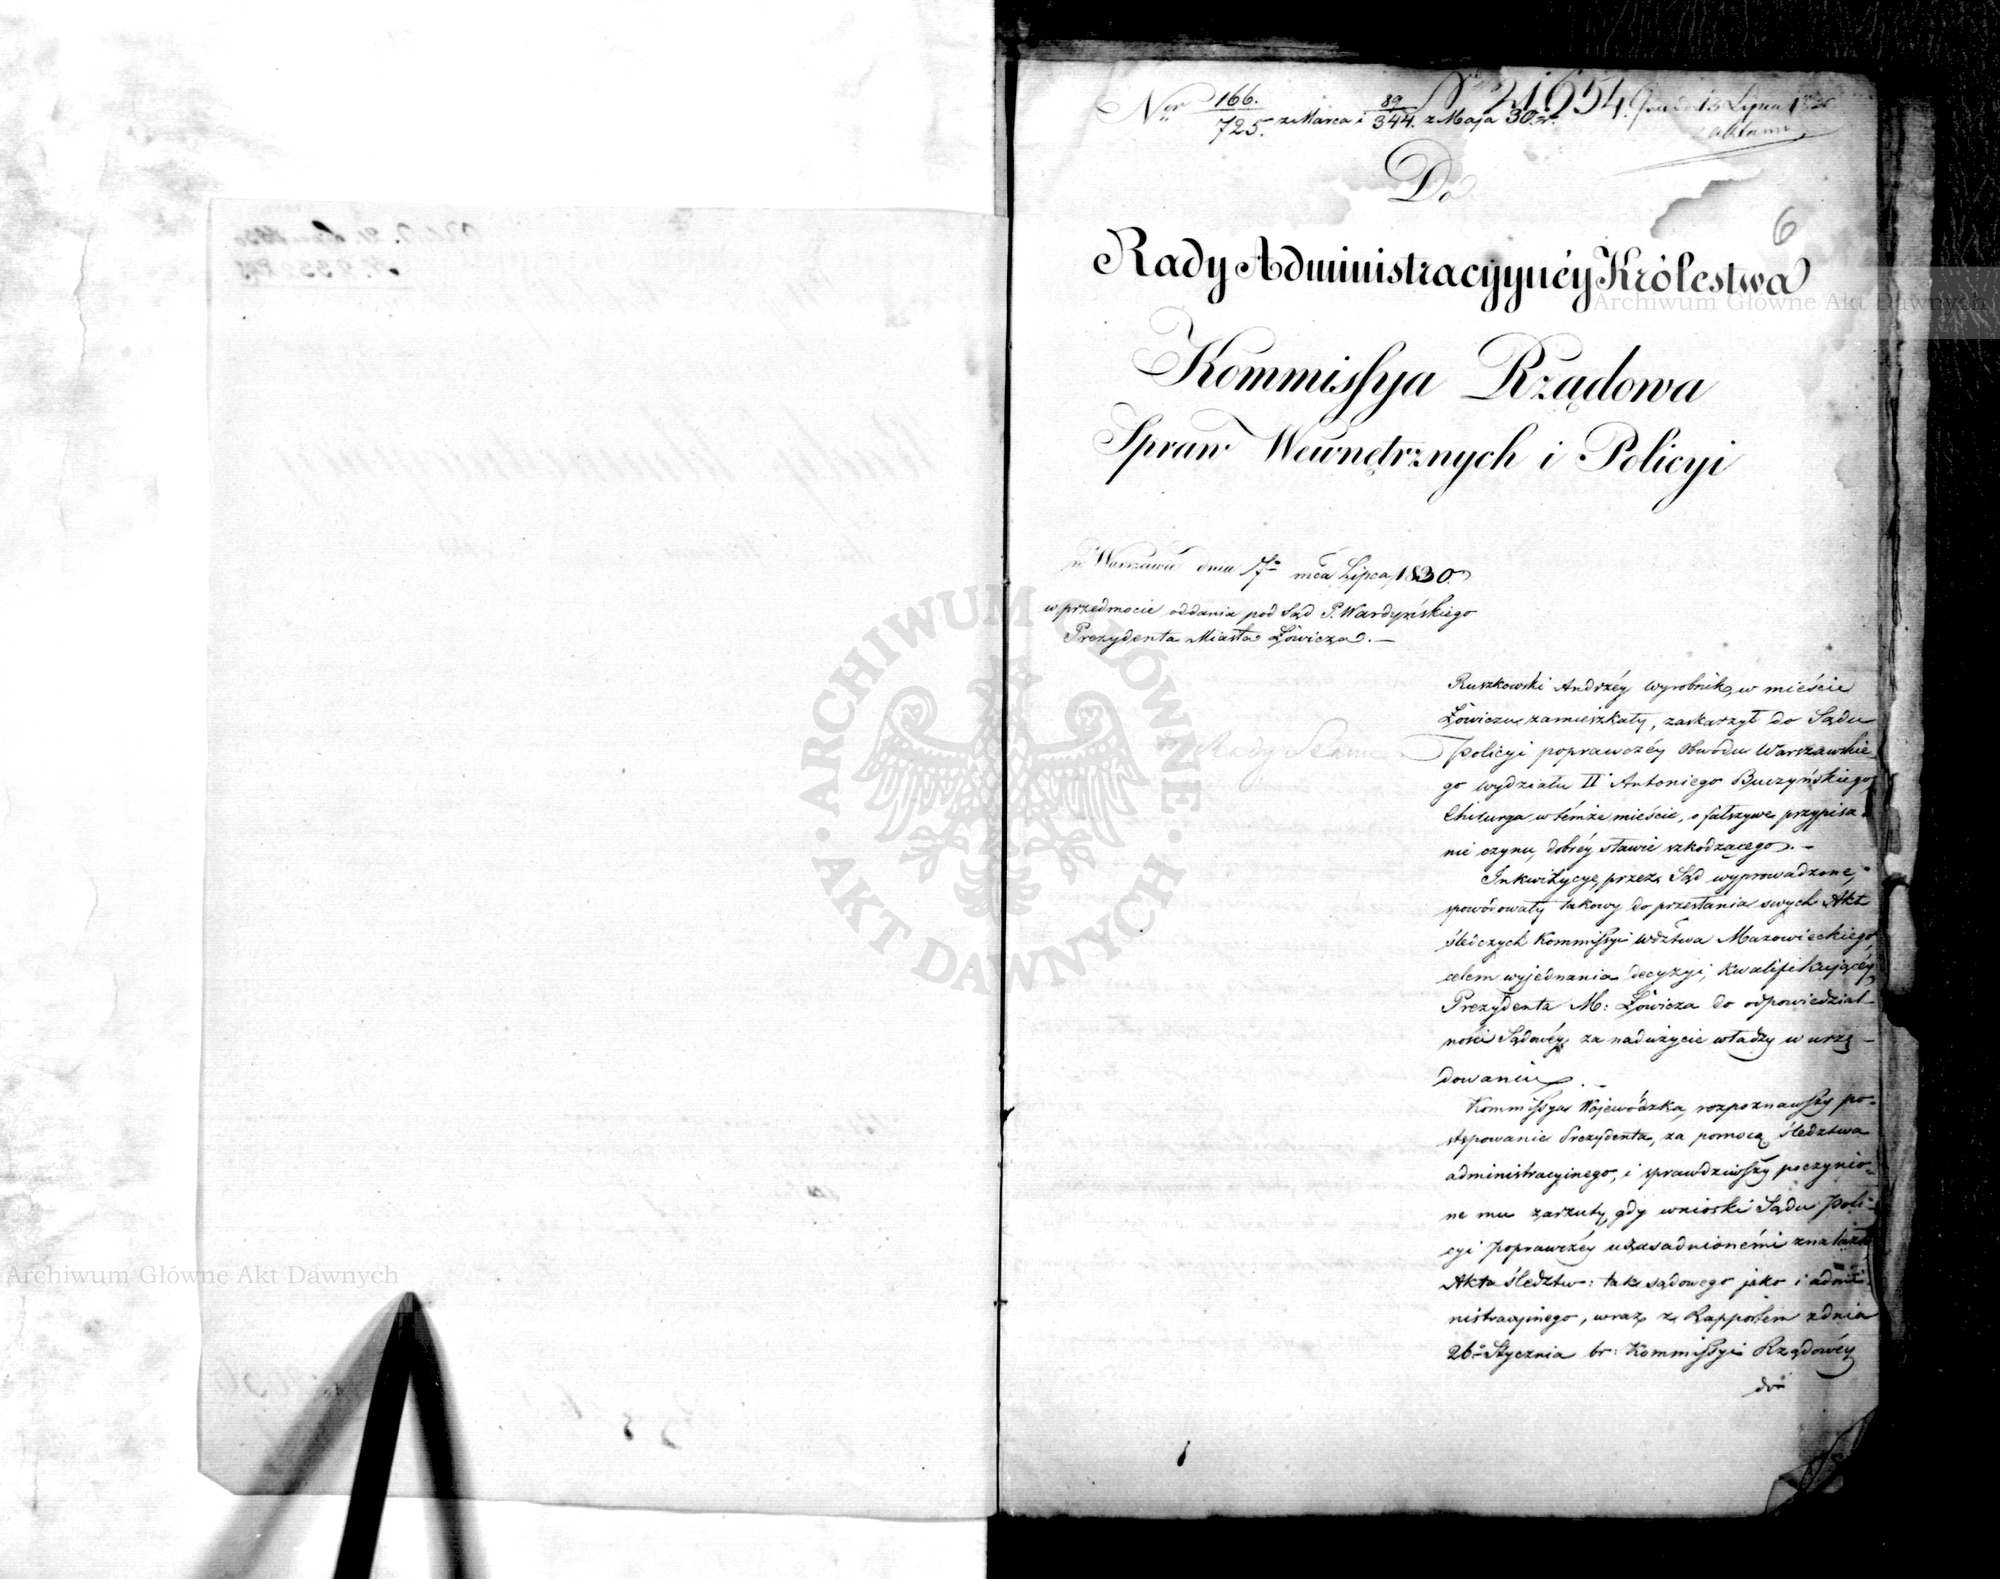 Ner 166./725. z Marca i 89/344. z Maja 30. r.
No 21654. 15 Lipca
z aktami
Do
6
Rady Administracyynéy Królestwa
Kommissya Rządowa
Spraw Wewnętrznych i Policyi
w Warszawie dnia 7o mca Lipca, 1830.
w przedmocie oddania pod Sąd P. Wardyńskiego
Prezydenta Miasta Łowicza. —
Ruszkowski Andrzéy wyrobnik, w mieście
Łowiczu zamieszkały, zaskarżył do Sądu
Policyi poprawczéy Obwodu Warszawskie
go wydziału II Antoniego Buczyńskiego,
Chirurga w témże mieście, o fałszywe przypisa
nie czynu, dobréy sławie szkodzącego. —
Inkwizycye, przez Sąd wyprowadzone,
spowodowały takowy do przesłania swych Akt
śledczych Kommissyi Wdztwa Mazowieckiego,
celem wyjednania decyzyi, kwalifikującéy
Prezydenta M: Łowicza do odpowiedzial-
ności Sądowéy, za nadużycie władzy w urzę-
dowaniu. —
Kommissya Wojewódzka, rozpoznawszy po-
stępowanie Prezydenta, za pomocą śledztwa
administracyinego, i sprawdziwszy poczynio-
ne mu zarzuty, gdy wnioski Sądu Poli-
cyi poprawczéy uzasadnionémi znalazła
Akta śledztw: tak sądowego jako i admi-
nistracyinego, wraz z Rapportem z dnia
26o Stycznia br: Kommissyi Rządowéy
do
Archiwum Główne Akt Dawnych
Archiwum Główne Akt Dawnych
ARCHIWUM GŁÓWNE · AKT DAWNYCH ·